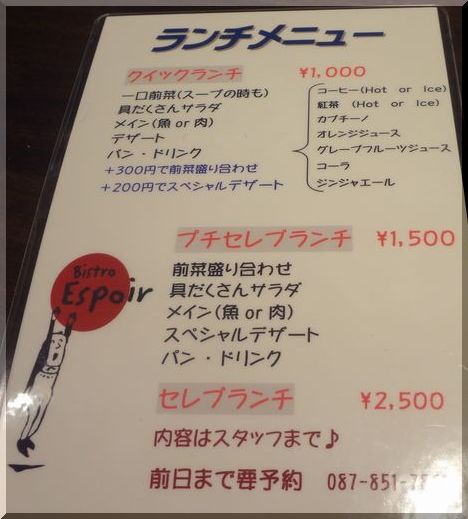 ランチメニュー
クイックランチ ¥1,000
一口前菜(スープの時も)
具だくさんサラダ
メイン(魚 or 肉)
デザート
パン・ドリンク
+300円で前菜盛り合わせ
+200円でスペシャルデザート
コーヒー(Hot or Ice)
紅茶 (Hot or Ice)
カプチーノ
オレンジジュース
グレープフルーツジュース
コーラ
ジンジャエール
プチセレブランチ ¥1,500
前菜盛り合わせ
具だくさんサラダ
メイン(魚 or 肉)
スペシャルデザート
パン・ドリンク
Bistro
Espoir
セレブランチ ¥2,500
内容はスタッフまで♪
前日まで要予約 087-851-